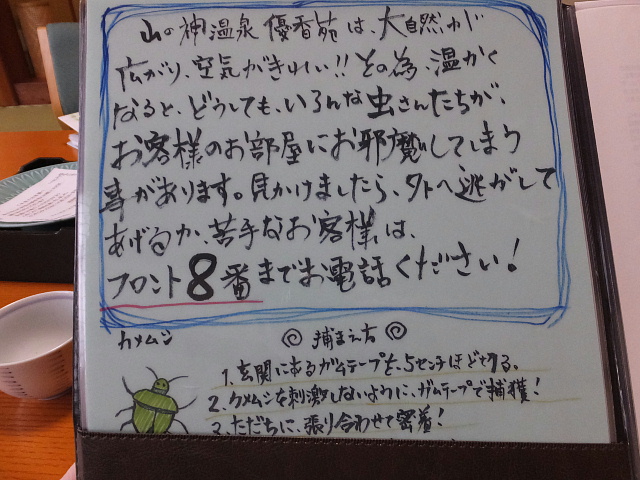 山の神温泉 優香苑は、大自然が
広がり、空気がきれい!! その為、温かく
なると、どうしても、いろんな虫さんたちが、
お客様のお部屋にお邪魔してしまう
事があります。見かけましたら、外へ逃がして
あげるか、苦手なお客様は、
フロント8番までお電話ください!
カメムシ ◎ 捕まえ方 ◎
1. 玄関にあるガムテープを、5センチほどきる。
2. カメムシを刺激しないように、ガムテープで捕獲!
3. ただちに、張り合わせて密着!